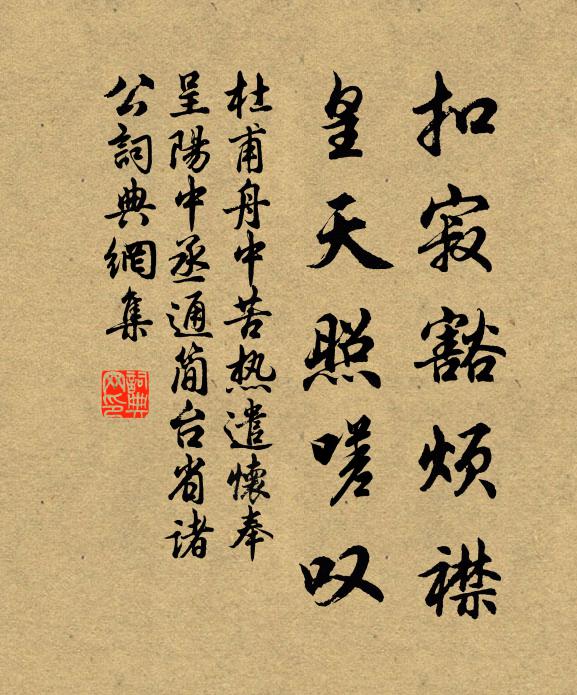 扣寂豁烦襟
皇天照嗟叹
杜甫舟中苦热遣懷奉
呈陽中丞通简台省诸
公詞典網集
詞典網印